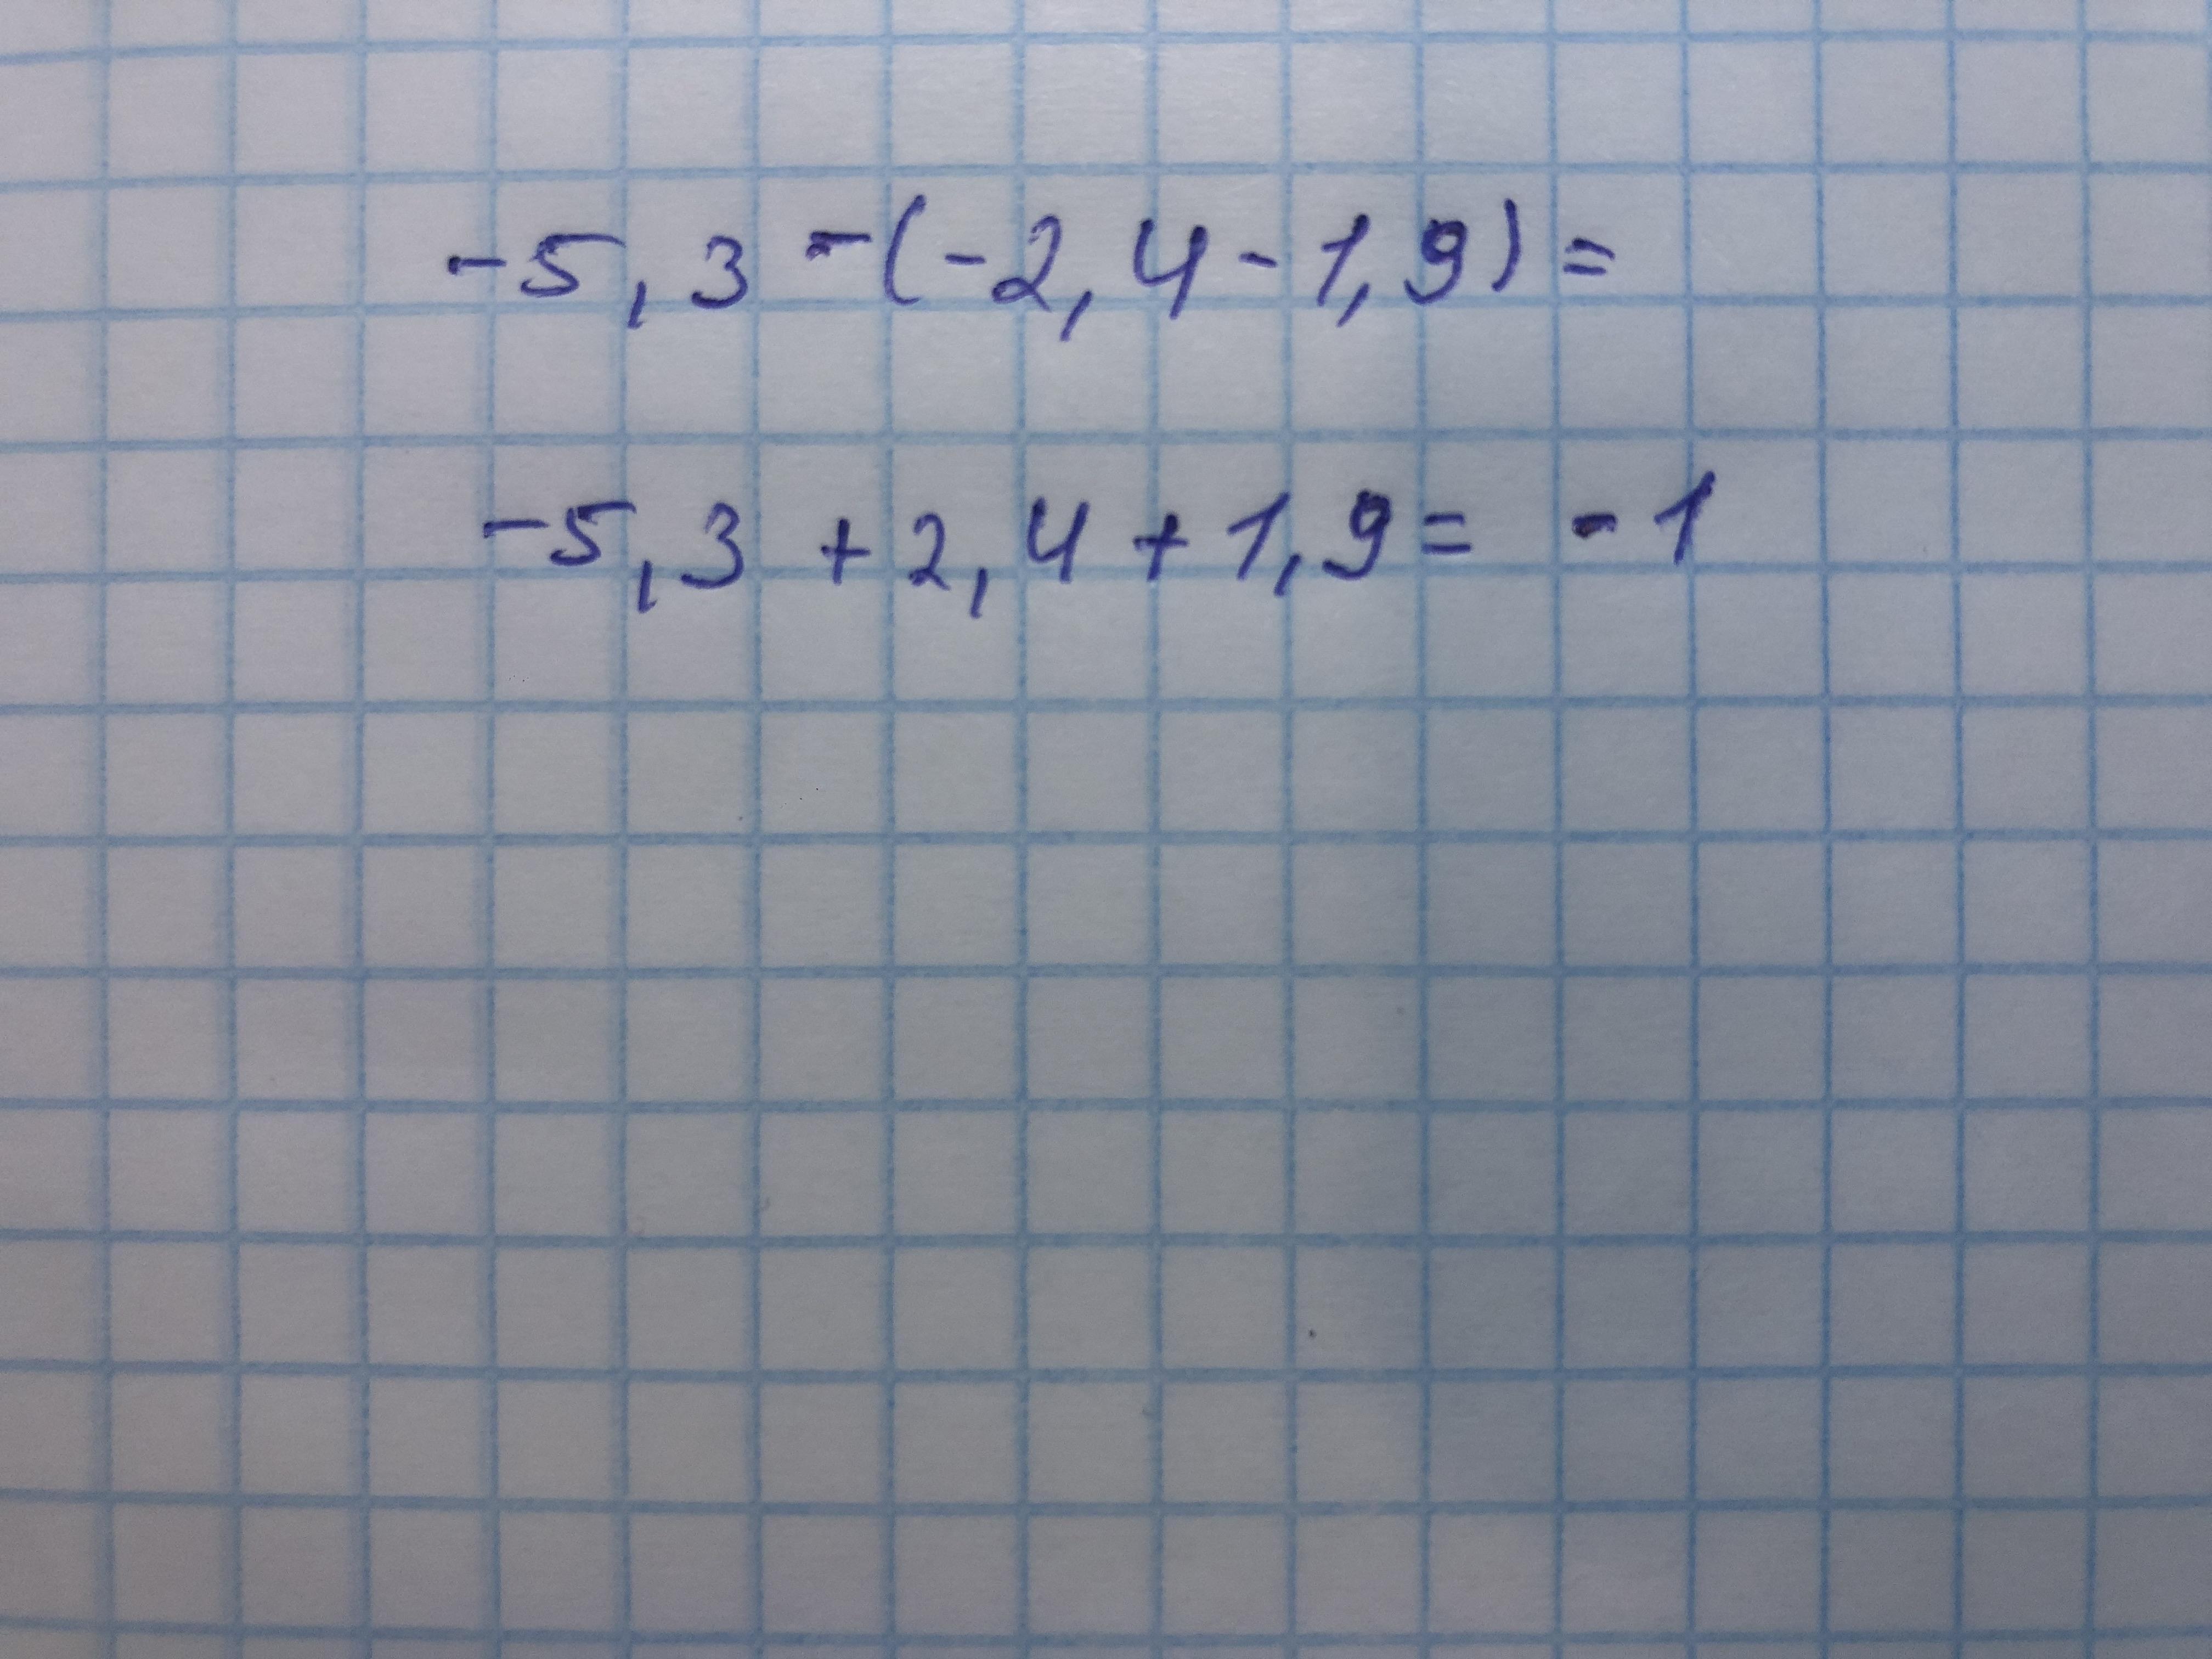 -5,3 -(-2,4-1,9)=
-5,3 +2,4+1,9= -1